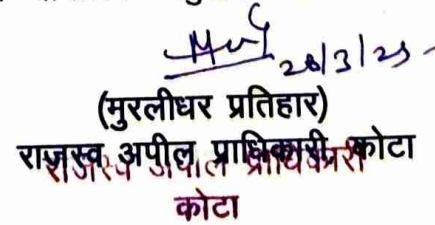 28/3/23
(मुरलीधर प्रतिहार)
राजस्व अपील प्राधिकारी, कोटा
राजस्व अपील प्राधिकारी
कोटा